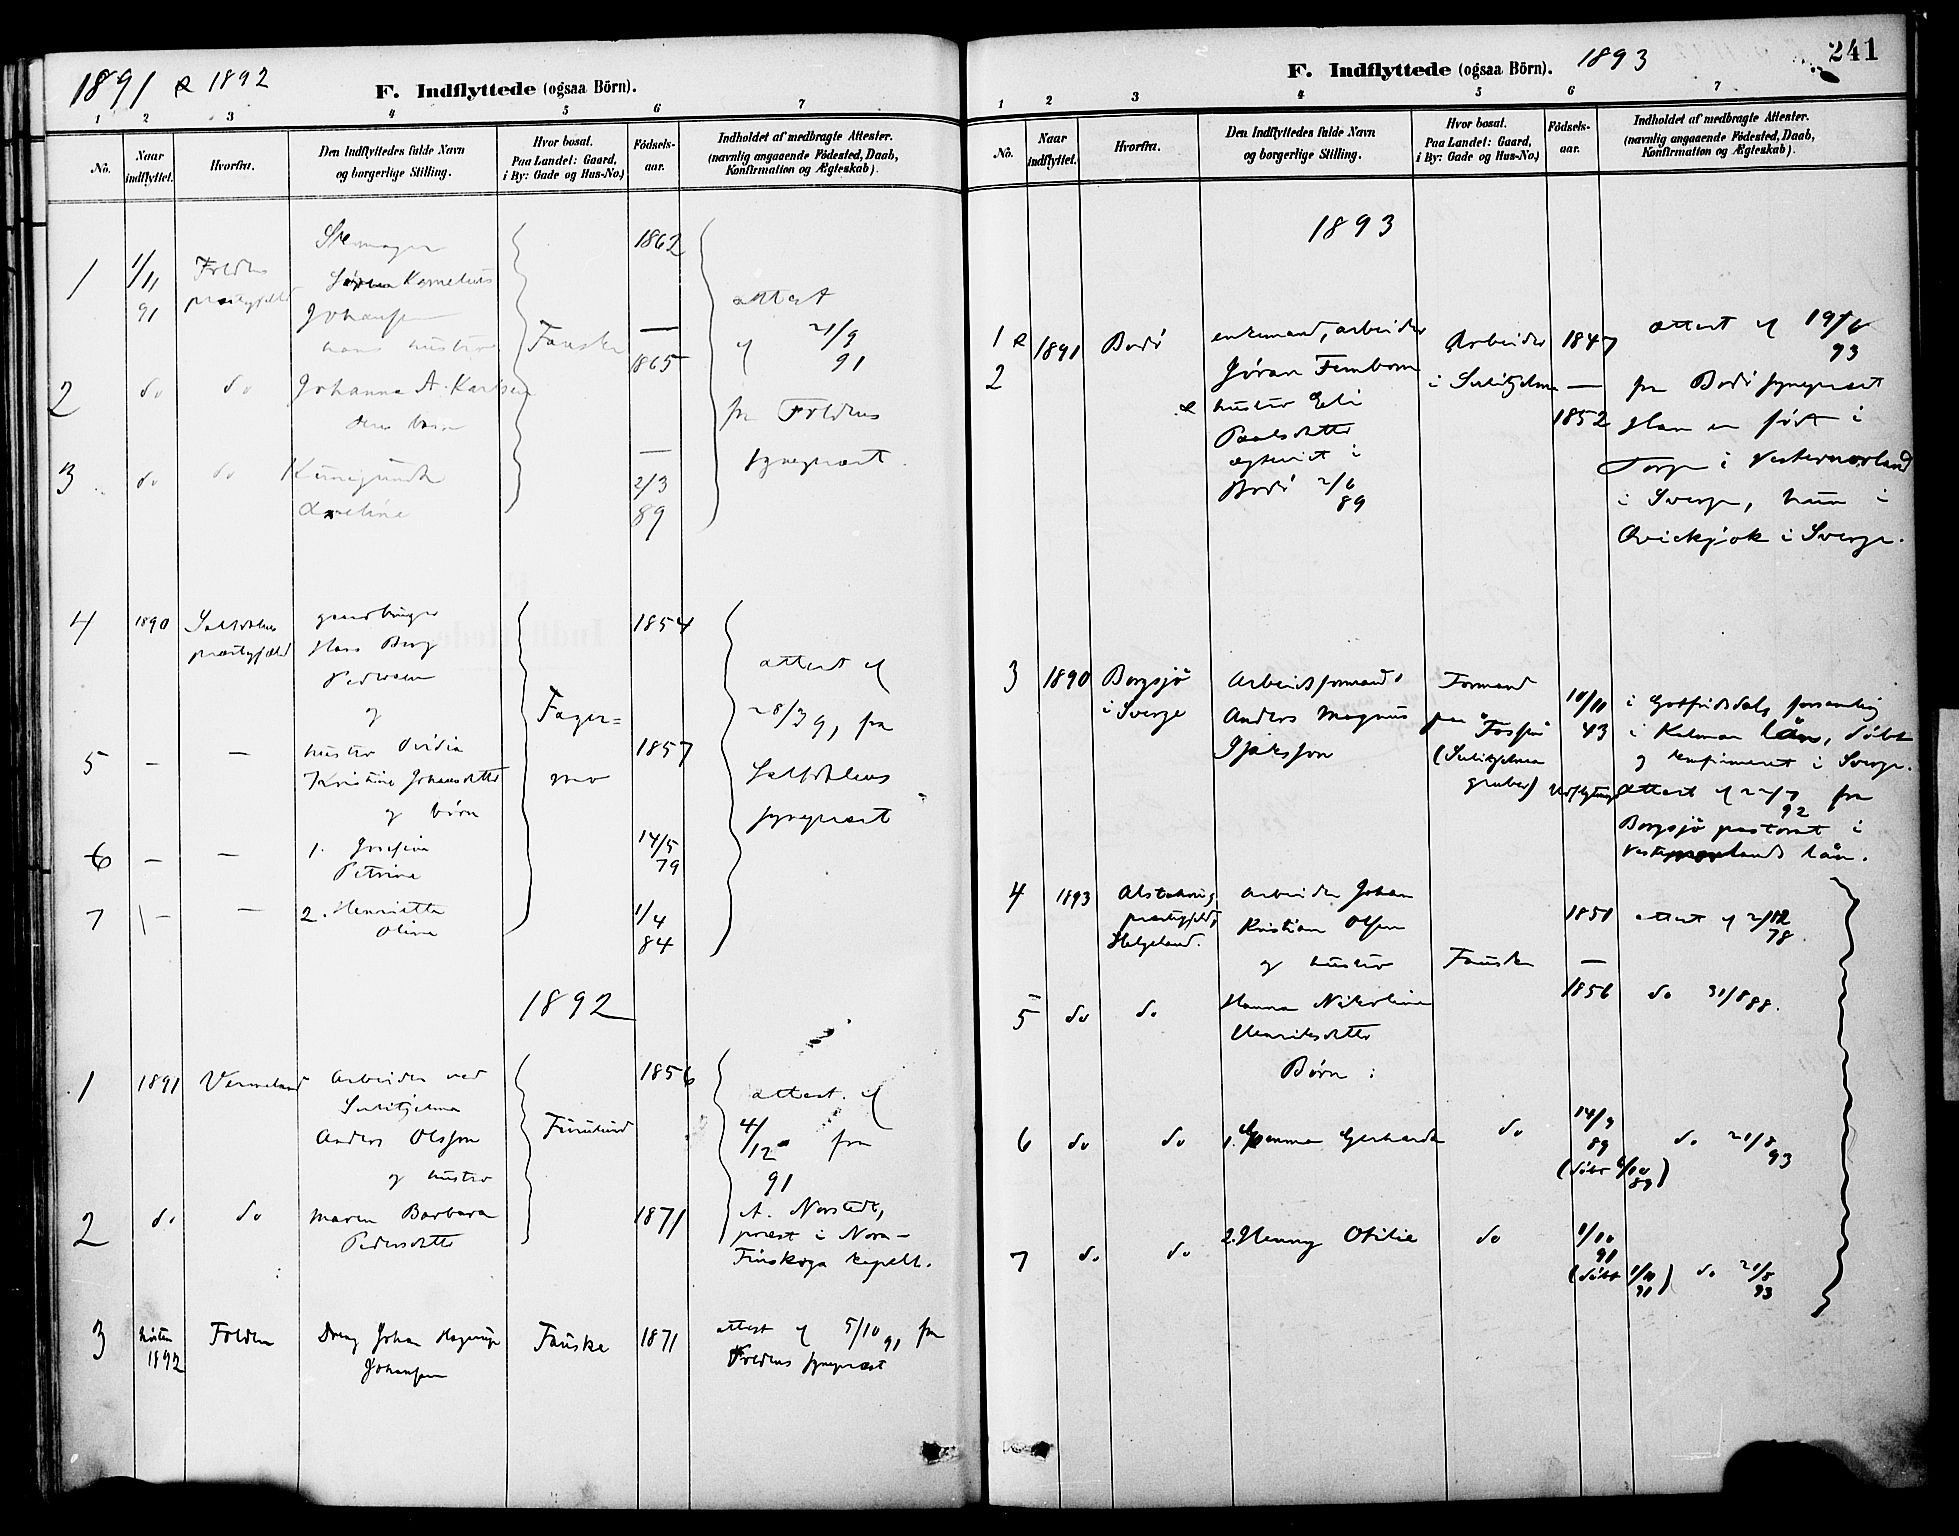 1891 & 1892
F. Indflyttede (ogsaa Börn).
1 2 3 4 5 6 7
No.
Naar indflyttet.
Hvorfra.
Den Indflyttedes fulde Navn og borgerlige Stilling.
Hvor bosat. Paa Landet: Gaard, i By: Gade og Hus-No.)
Födsels-aar.
Indholdet af medbragte Attester. (navnlig angaaende Födested, Daab, Konfirmation og Ægteskab).
1 1/11 91 Foldens præstegjeld
Kornelius
Johansen
hans hustru
Fauske
1862
attest
af 21/9 91
fra Foldens
sognepræst.
2 do do Johanna A. Karlsen
deres barn
— 1865
3 do do Kunigunda
— 2/3 89
4 1890 Saltdalens præstegjeld
gaardbruger
Hans Berg
Pedersen
og
1854
Fager=
mo
attest af
28/3 9, fra
Saltdalens
sognepræst
5 — — hustru Ovidia
Kristine Johansdatter
og børn
1857
6 — — 1. Josefine
Petrine
14/5 79
7 — — 2. Henriette
Oline
1/4 84
1892
1 1891 Vermeland
Arbeider ved
Sulitjelma
Anders Olsson
og hustru
Furulund
1856
attest af
4/12 91 fra
A. Norstedt,
præst i Norra-
Finskoga kapell.
2 do do Maren Barbara
Pedersdatter
1871
3 høsten 1892 Folden
Dreng Johan Hagerup
Johansen
Fauske 1871
attest af 5/10 91 fra
Foldens sognepræst
F. Indflyttede (ogsaa Börn).
1893
241
1 2 3 4 5 6 7
No.
Naar indflyttet.
Hvorfra.
Den Indflyttedes fulde Navn og borgerlige Stilling.
Hvor bosat. Paa Landet: Gaard, i By: Gade og Hus-No.)
Födsels-aar.
Indholdet af medbragte Attester. (navnlig angaaende Födested, Daab, Konfirmation og Ægteskab).
1893
1 & 2 1891 Bodø
enkemand, arbeider
Jøran Fembom
& hustru Eli
Paalsdatter
ægteviet i
Bodø 2/6 89
Arbeider
i Sulitjelma
1847
—
1852
attest af 19/6 93
fra Bodø sognepræst
Han er født i
Torp i Vesternorrland
i Sverge, hun i
Qvickjok i Sverge.
3 1890 Borgsjø
i Sverge
Arbeidsformand
Anders Magnus
Isaksson
Formand
paa Fossen
(Sulitjelma
gruber)
10/11 43
i Gotfridsdals forsamling
i Kalmar län, døbt
og konfirmeret i Sverge.
Udflytnings attest af 22/7 92 fra
Borgsjø pastorat i
Vesternorrlands län.
4 1893 Alstahoug
præstegjeld,
Helgeland.
Arbeider Johan
Kristian Olsen
og hustru
Fauske
1851
attest af 2/12 78
5 do do
Hanna Nikoline
Henriksdatter
— 1856
do 31/8 88.
Børn:
6 do do 1. Gemma Gerharda do
14/9 89
(døbt 6/10 89)
do 21/8 93
7 do do 2. Henny Otilie do
1/10 91
(døbt 1/11 91)
do 21/8 93